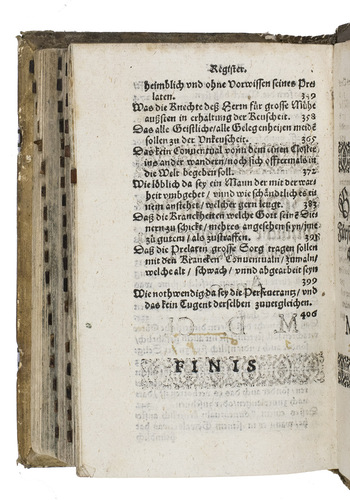 Register.
heimblich vnd ohne Vorwissen seines Pre
laten. 349
Was die Knechte deß Herrn für grosse Mühe
außsten in erhaltung der Keuscheit. 358
Das alle Geistliche/alle Gelegenheiten meidē
sollen zu der Vnkeuscheit. 365
Das kein Conventual von dem einen Closter
ins ander wandern/noch sich offtermals in
die Welt begeben soll. 372
Wie löblich da sey ein Mann der mit der war
heit vmbgehet / vnnd wie schändtlich es
einem anstehet/welcher gern leuge. 383
Daß die Kranckheiten welche Gott seinē Die
nern zu schickt/mehres angesehen seyn/jme
zu gutem/als zustraffen. 391
Daß die Prelaten grosse Sorg tragen sollen
mit den Krancken Conventualn/zumaln/
welche alt / schwach / vnnd abgearbeit seyn
399
Wie nothwendig da sey die Perseuerantz/vnd
das kein Tugent derselben zuuergleichen.
406
FINIS